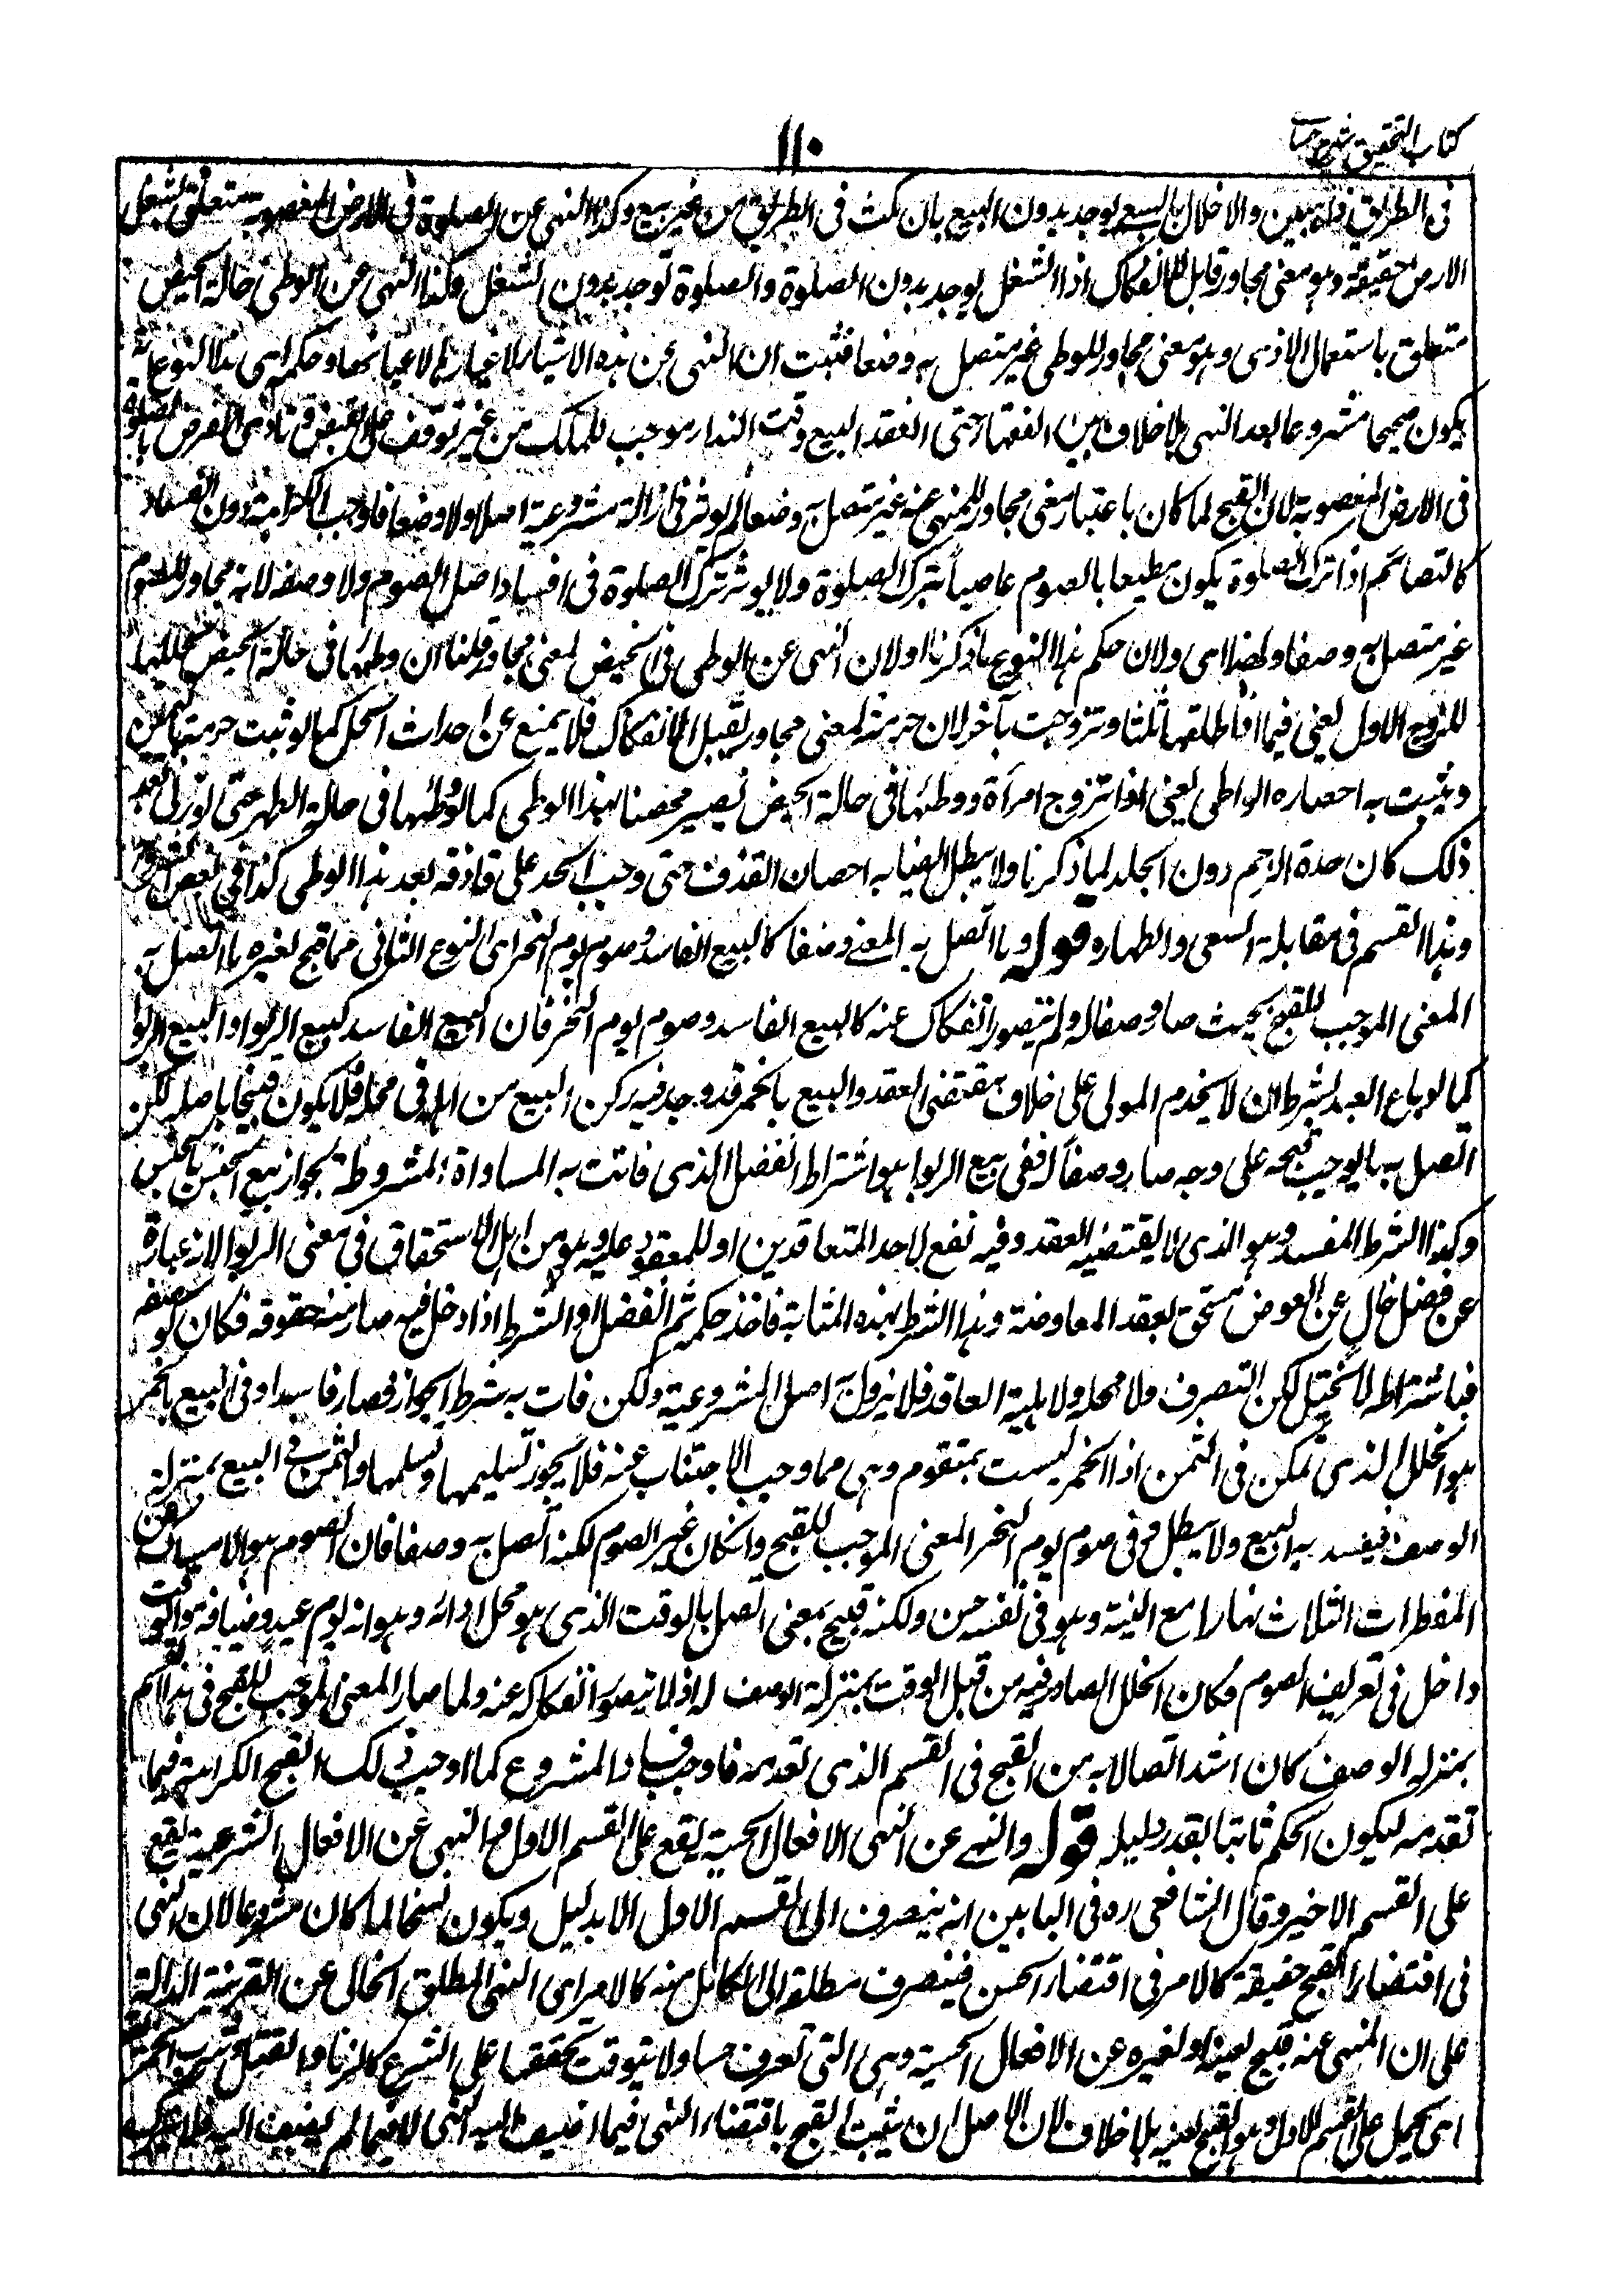 كتاب التحقيق شرح حسامي
١١٠
في الطريق ذاهبين والاخلال بالسعي يوجد بدون البيع بان مكث في الطريق من غير بيع وكذا النهي عن الصلوة في الارض المغصوبة متعلق بشغل
الارض حقيقة وهو معنى مجاور قابل للانفكاك اذا الشغل يوجد بدون الصلوة والصلوة توجد بدون الشغل وكذا النهي عن الوطي حالة الحيض
متعلق باستعمال الاذى وهو معنى مجاور للوطي غير متصل به وضعا فثبت ان النهي عن هذه الاشياء لاغيارها لا لاعيانها وحكمه اي هذا النوع انه
يكون صحيحا مشروعا بعد النهي بلا خلاف بين الفقهاء حتى انعقد البيع وقت النداء موجب للملك من غير توقف على القبض وتادى الفرض بالصلوة
في الارض المغصوبة لان القبح لما كان باعتبار معنى مجاور للمنهي عنه غير متصل به وضعا لم يوثر في ازالة مشروعية اصلا ولا وضعا فاوجب الكراهية دون الفساد
كالصائم اذا ترك الصلوة يكون مطيعا بالصوم عاصيا بترك الصلوة ولا يوثر ترك الصلوة في افساد اصل الصوم ولا وصفه لانه مجاور للصوم
غير متصل به وصفا ولهذا اي ولان حكم هذا النوع ما ذكرنا او لان النهي عن الوطي في الحيض لمعنى مجاور قلنا ان وطيها في حالة الحيض يحللها
للزوج الاول يعني فيما اذا طلقها ثلثا وتزوجت بآخر لان حرمته لمعنى مجاور يقبل الانفكاك فلا يمنع عن احداث الحل كما لو ثبت حرمتها بيمين
ويثبت به احصان الواطي يعني اذا تزوج امرأة ووطئها في حالة الحيض يصير محصنا بهذا الوطي كما لو وطئها في حالة الطهر حتى لو زنى بعد
ذلك كان حده الرجم دون الجلد لما ذكرنا ولا يبطل ايضا به احصان القذف حتى وجب الحد على قاذفه بعد هذا الوطي كذا في بعض الشروح
وهذا القسم في مقابلة السعي والطهارة قوله وما اتصل به المعنى وصفا كالبيع الفاسد وصوم يوم النحر اي النوع الثاني مما قبح لغيره ما اتصل به
المعنى الموجب للقبح بحيث صار وصفا له ولم يتصور انفكاك عنه كالبيع الفاسد وصوم يوم النحر فان البيع الفاسد كبيع الربوا والبيع الربوا
كما لو باع العبد بشرط ان لا يخدم المولى على خلاف مقتضى العقد والبيع بالخمر قد وجد فيه ركن البيع من اهله في محله فلا يكون قبيحا باصله لكن
اتصل به ما يوجب قبحه على وجه صار وصفا له ففي بيع الربوا هو اشتراط الفضل الذي فاتت به المساواة المشروطة لجواز بيع الجنس بالجنس
وكذا الشرط المفسد وهو الذي لا يقتضيه العقد وفيه نفع لاحد المتعاقدين او للمعقود عليه وهو من اهل الاستحقاق في معنى الربوا لانه عبارة
عن فضل خال عن العوض مستحق بعقد المعاوضة وهذا الشرط بهذه المثابة فاخذ حكمه ثم الفضل او الشرط اذا دخل فيه صار من حقوقه فكان كوصفه
فباشتراطه لا يختل ركن التصرف ولا محله ولا اهلية العاقد فلا يزول به اصل المشروعية ولكن فات به شرط الجواز فصار فاسدا وفي البيع بالخمر
هو الخلل الذي تمكن في الثمن اذ الخمر ليست بمتقوم وهي مما وجب الاجتناب عنه فلا يجوز تسليمها وتسلمها والثمن في البيع بمنزلة
الوصف فيفسد به البيع ولا يبطل وفي صوم يوم النحر المعنى الموجب للقبح وان كان غير الصوم لكنه اتصل به وصفا فان الصوم هو الامساك عن
المفطرات الثلاث نهارا مع النية وهو في نفسه حسن ولكنه قبيح بمعنى اتصل بالوقت الذي هو محل ادائه وهو انه يوم عيد وضيافة والوقت
داخل في تعريف الصوم فكان الخلل الصادر فيه من قبل الوقت بمنزلة الوصف له اذ لا يتصور انفكاكه عنه ولما صار المعنى الموجب للقبح في هذا القسم
بمنزلة الوصف كان اشد اتصالا به من القبح في القسم الذي تقدمه فاوجب فساد المشروع كما اوجب ذلك القبح الكراهة فيما
تقدمه ليكون الحكم ثابتا بقدر دليله قوله والنهي عن النهى الافعال الحسية يقع على القسم الاول والنهي عن الافعال الشرعية يقع
على القسم الاخير وقال الشافعي ره في البابين انه ينصرف الى القسم الاول الا بدليل ويكون نسخا لما كان مشروعا لان النهي
في اقتضاء القبح حقيقة كالامر في اقتضاء الحسن فينصرف مطلقه الى الكامل منه كالامر اي النهي المطلق الخالي عن القرينة الدالة
على ان المنهي عنه قبيح لعينه او لغيره عن الافعال الحسية وهي التي تعرف حسا ولا يتوقف تحققها على الشرع كالزنا والقتل وشرب الخمر
اي يحمل على القسم الاول وهو القبيح لعينه بلا خلاف لان الاصل ان يثبت القبح باقتضاء النهي فيما اضيف اليه النهي لا فيما لم يضف اليه